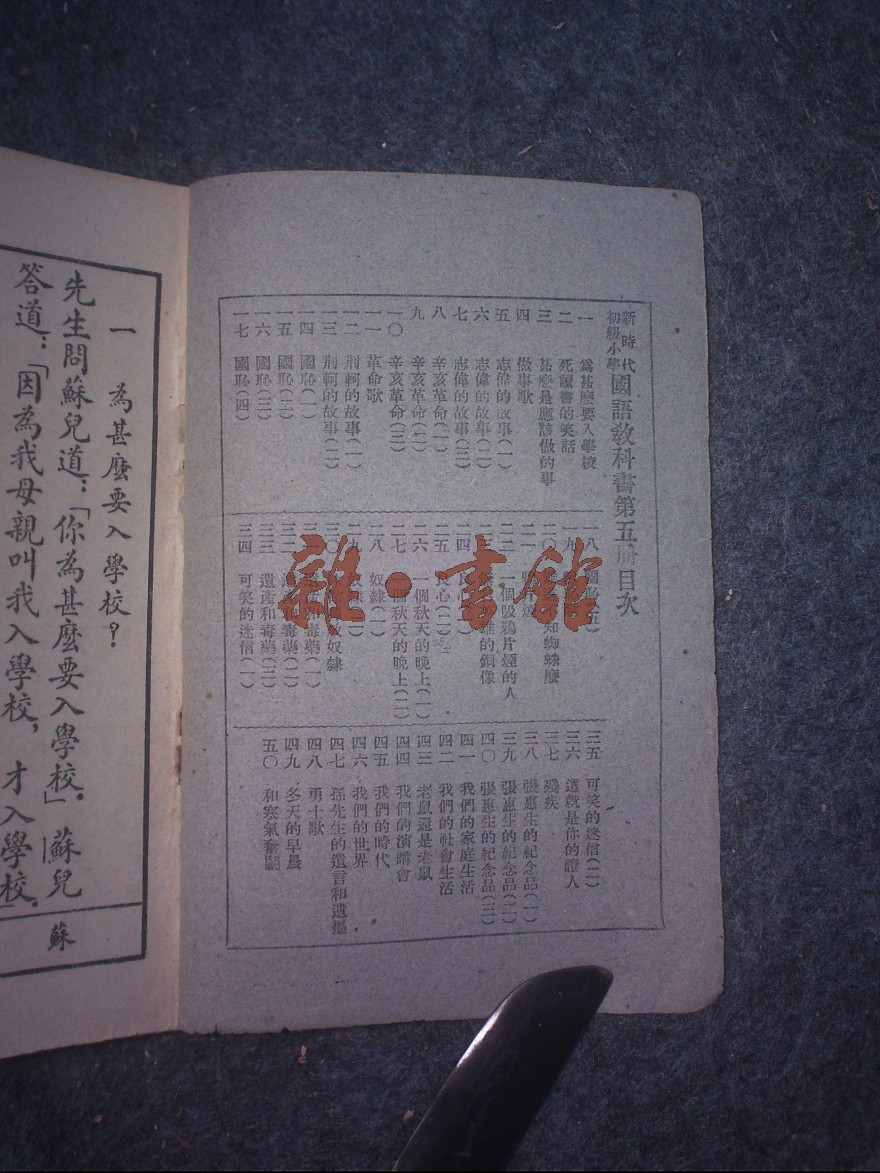 新時代
初級小學
國語教科書第五冊目次
一 爲甚麼要入學校
二 死讀書的笑話
三 甚麼是應該做的事
四 做事歌
五 志偉的故事(一)
六 志偉的故事(二)
七 志偉的故事(三)
八 辛亥革命(一)
九 辛亥革命(二)
一〇 辛亥革命(三)
一一 革命歌
一二 荆軻的故事(一)
一三 荆軻的故事(二)
一四 國恥(一)
一五 國恥(二)
一六 國恥(三)
一七 國恥(四)
一八 國恥(五)
一九
二〇 知蜘蛛麼
二一
二二 一個吸鴉片煙的人
二三 雄的銅像
二四 良心(一)
二五 良心(二)
二六 一個秋天的晚上(一)
二七 一個秋天的晚上(二)
二八 奴隸(一)
二九
三〇 奴隸
三一 遺產和毒藥(一)
三二 遺產和毒藥(二)
三三 遺產和毒藥(三)
三四 可笑的迷信(一)
三五 可笑的迷信(二)
三六 這就是你的證人
三七 殘疾
三八 張惠生的紀念品(一)
三九 張惠生的紀念品(二)
四〇 張惠生的紀念品(三)
四一 我們的家庭生活
四二 我們的社會生活
四三 老鼠還是老鼠
四四 我們的演講會
四五 我們的時代
四六 我們的世界
四七 孫先生的遺言和遺墨
四八 勇士歌
四九 冬天的早晨
五〇 和寒氣奮鬭
雜·書館
一 為甚麼要入學校?
先生問蘇兒道:「你為甚麼要入學校」.蘇兒
答道:「因為我母親叫我入學校,才入學校」.
蘇